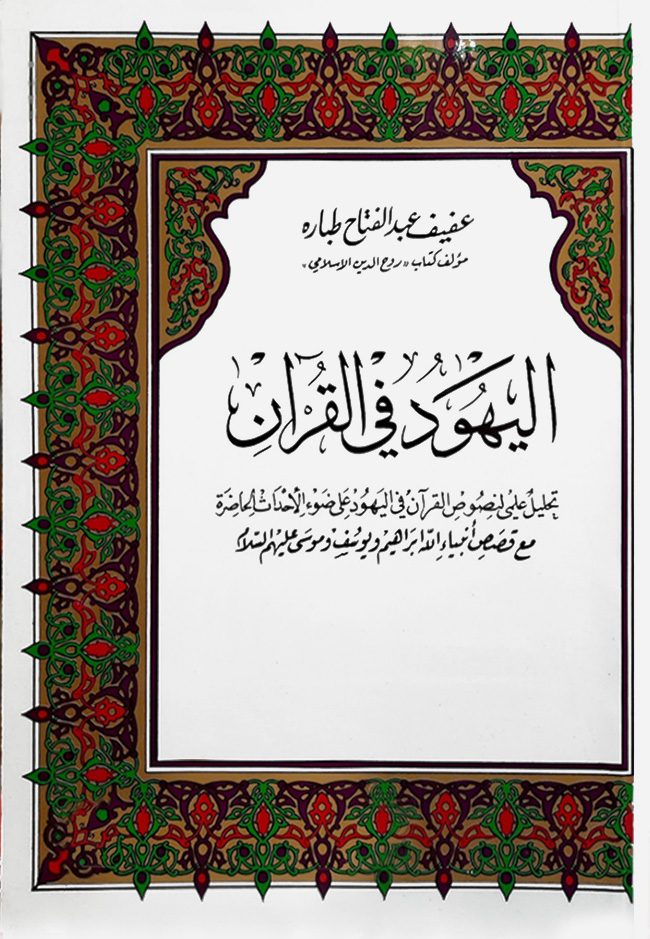 عفيف عبد الفتاح طباره
مؤلف كتاب «روح الدين الاسلامي»
اليَهُودُ في القُرآنِ
تحليل علمي لنصوص القرآن في اليهود على ضوء الأحداث الحاضرة
مع قصص أنبياء الله ابراهيم ويوسف وموسى عليهم السلام